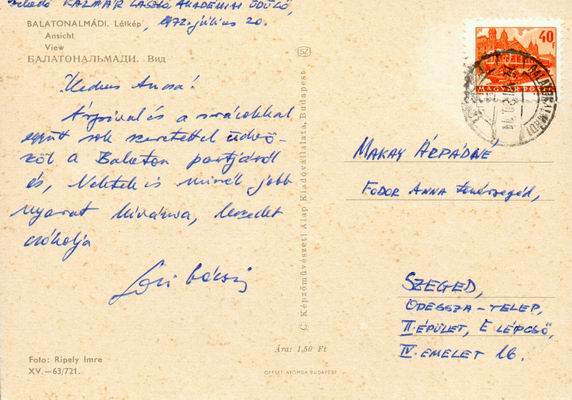 Feladó KALMÁR LÁSZLÓ AKADÉMIAI ÜDÜLŐ,
BALATONALMÁDI. Látkép
1972. július 20.
Ansicht
View
БАЛАТОНАЛЬМАДИ. Вид
Kedves Anna!
Árpival és a srácokkal
együtt sok szeretettel üdvö-
zöl a Balaton partjáról
és, Nektek is minél jobb
nyarat kívánva, kezedet
csókolja
Laci bácsi
Foto: Ripely Imre
XV.—63/721.
C Képzőművészeti Alap Kiadóvállalata, Budapest
Ára: 1,50 Ft
OFFSET ATHENAEUM BUDAPEST
40
MAGYAR POSTA
BALATONALMÁDI
MAKAY ÁRPÁDNÉ
FODOR ANNA tanársegéd,
SZEGED,
ODESSZA-TELEP,
II. ÉPÜLET, E LÉPCSŐ,
IV. EMELET 16.